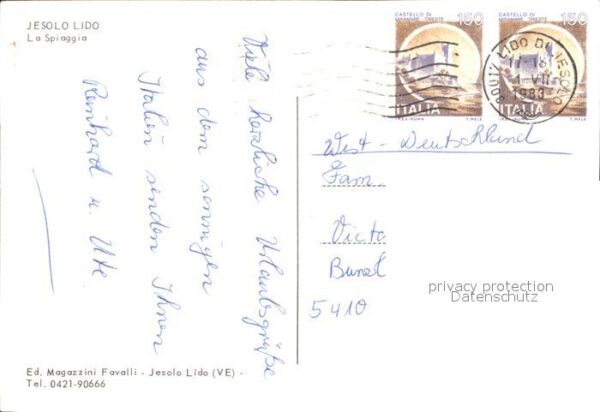 JESOLO LIDO
La Spiaggia
Viele herzliche Urlaubsgrüße
aus dem sonnigen
Italien senden Ihnen
Reinhard u. Ute
CASTELLO DI
MIRAMARE · TRIESTE
150
ITALIA
I.P.Z.S. ROMA
T. MELE
CASTELLO DI
MIRAMARE · TRIESTE
150
ITALIA
T. MELE
30017 LIDO DI JESOLO
17-18
VII
1983
West-Deutschland
Fam.
5410
privacy protection
Datenschutz
Ed. Magazzini Favalli - Jesolo Lido (VE) -
Tel. 0421-90666